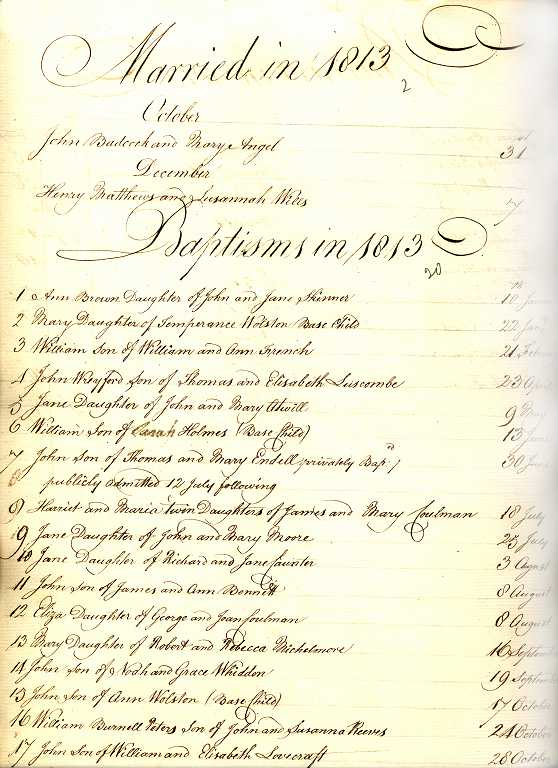 Married in 1813
2
October
John Budcock and Mary Angel 31
December
Henry Matthews and Susannah Wills 7
Baptisms in 1813
20
1 Ann Brown Daughter of John and Jane Skinner 10
2 Mary Daughter of Temperance Wolston Base Child 22
3 William Son of William and Ann French 21
4 John Wreyford Son of Thomas and Elisabeth Luscombe 23
5 Jane Daughter of John and Mary Atwill 9 May
6 William Son of Sarah Holmes (Base Child) 13
7 John Son of Thomas and Mary Endell privately Bap.d / 30
publicly admitted 12 July following
8 9 Harriet and Maria Twin Daughters of James and Mary Coulman 18 July
9 Jane Daughter of John and Mary Moore 25 July
10 Jane Daughter of Richard and Jane Caunter 3 August
11 John Son of James and Ann Bennett 8 August
12 Eliza Daughter of George and Joan Coulman 8 August
13 Mary Daughter of Robert and Rebecca Michelmore 16 Septem
14 John Son of Noah and Grace Whiddon 19 Septem
15 John Son of Ann Wolston (Base Child) 17 October
16 William Burnell Peters Son of John and Susanna Reeves 24 October
17 John Son of William and Elisabeth Lovecraft 28 October